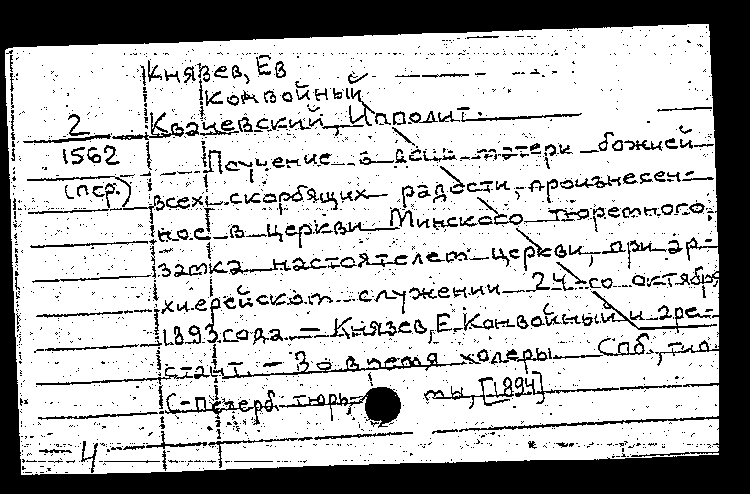 Князев, Ев
Конвойный
2 Квачевский, Ипполит.
1562 Поучение в день матери божией
(пер.) всех скорбящих радости, произнесен-
ное в церкви Минского тюремного
замка настоятелем церкви, при ар-
хиерейском служении 24-го октября
1893 года – Князев, Е. Конвойный и аре-
стант. – Во время холеры Спб., тип.
С-Петерб. тюрь мы, [1894]
4